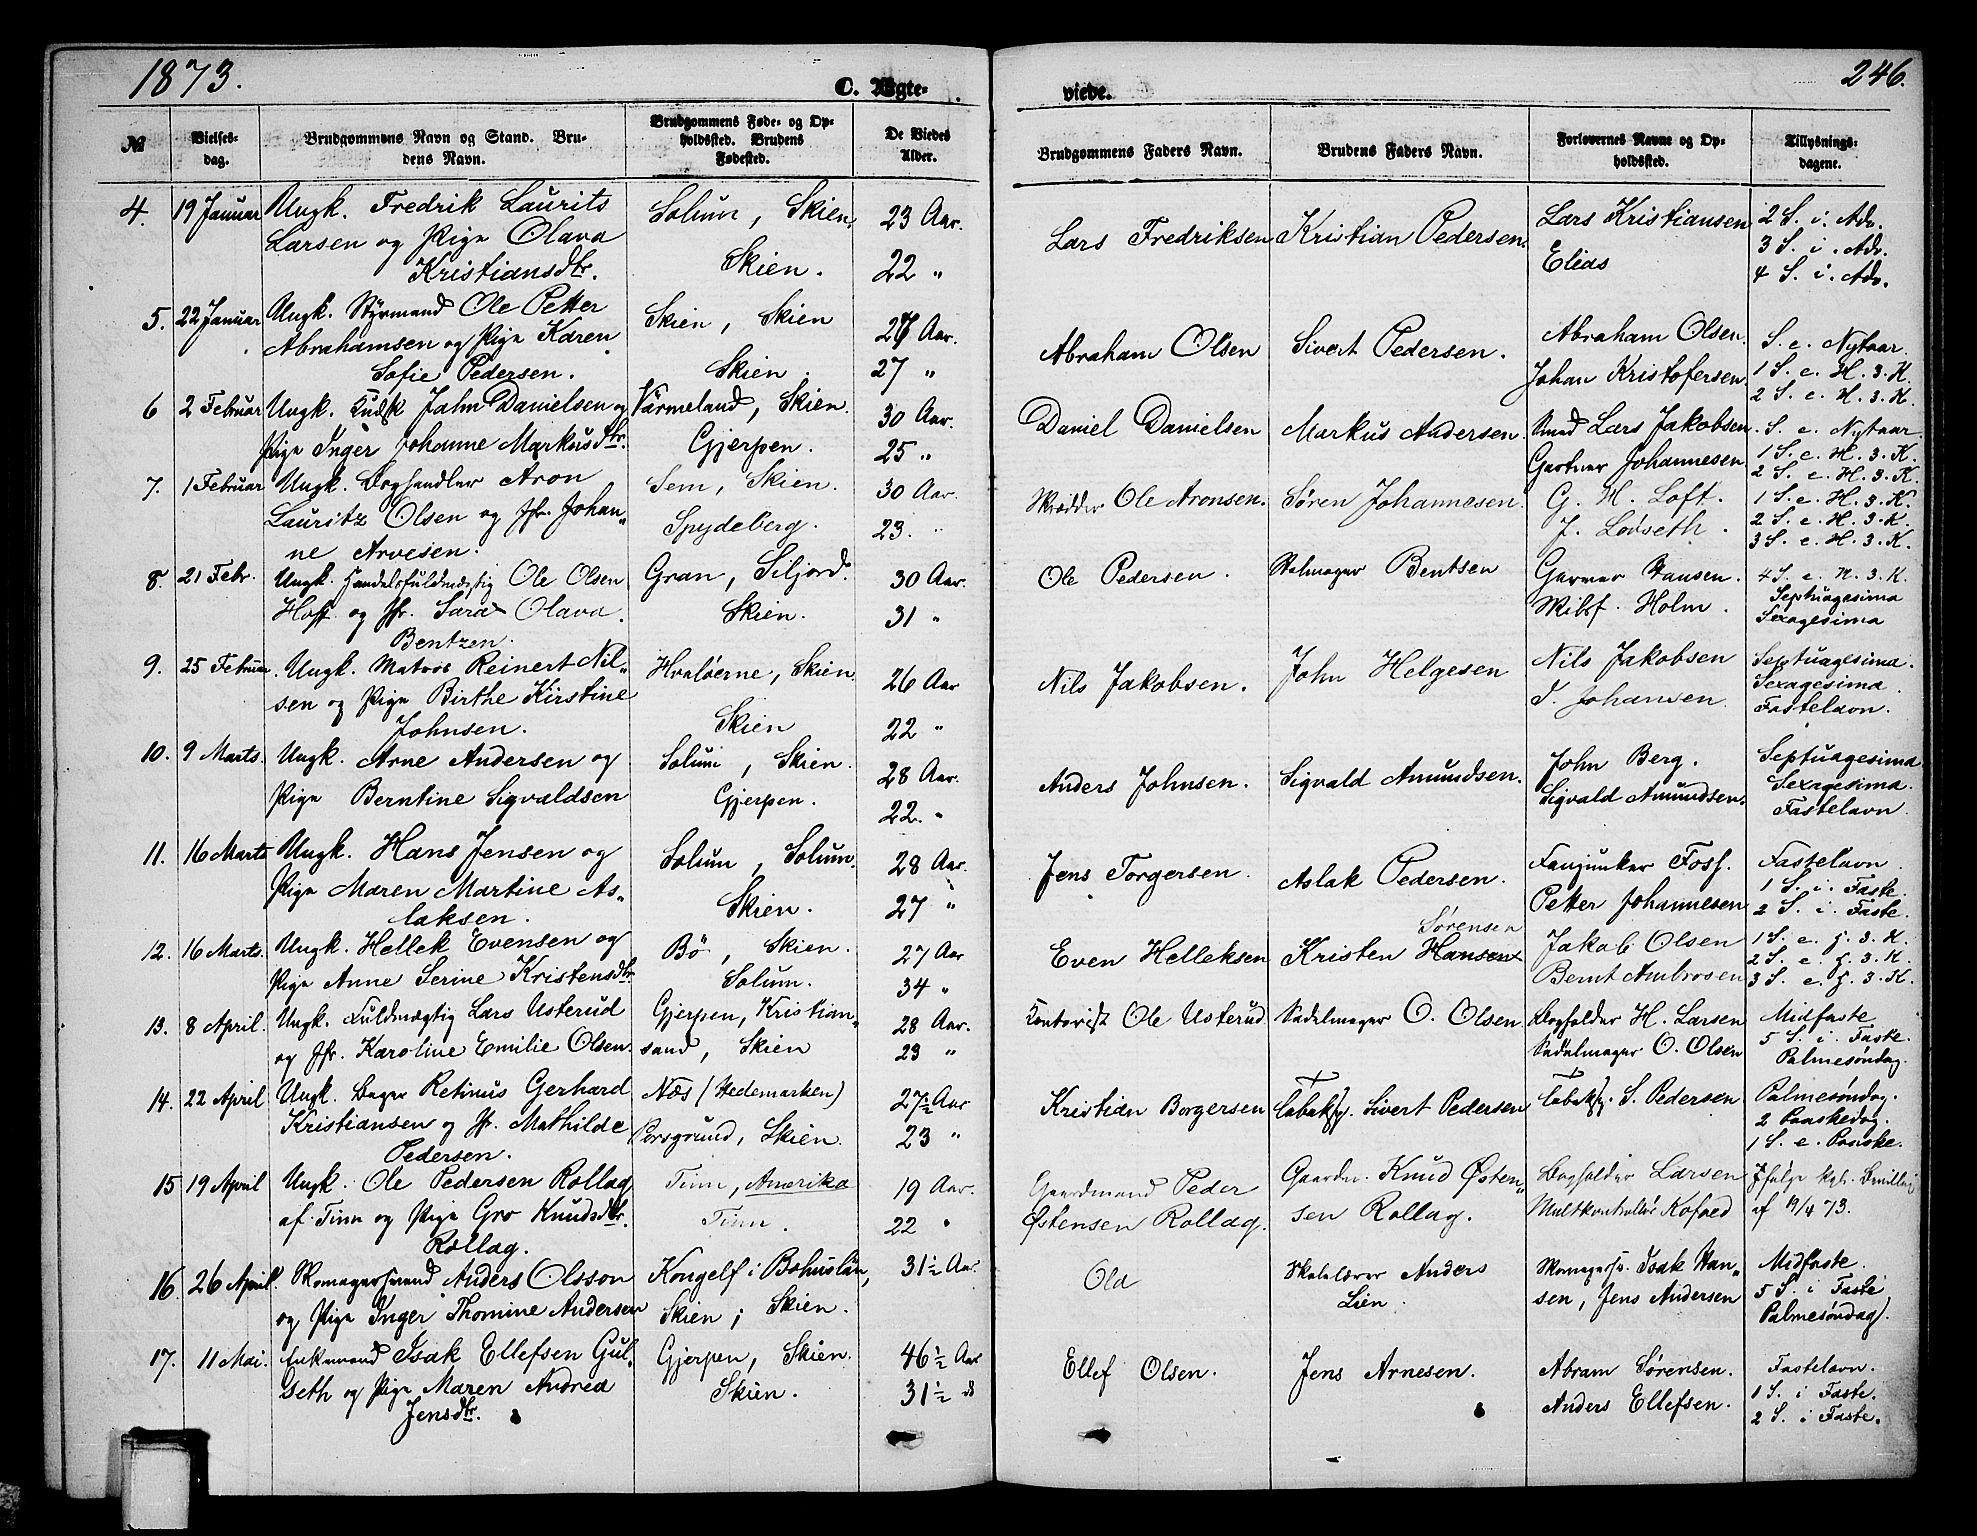 1873.
C. Ægte-
viede.
246.
№
Vielses-
dag.
Brudgommens Navn og Stand. Bru-
dens Navn.
Brudgommens Føde- og Op-
holdssted. Brudens
Fødested.
De Viedes
Alder.
Brudgommens Faders Navn.
Brudens Faders Navn.
Forlovernes Navne og Op-
holdssted.
Tillysnings-
dagene.
4. 19 Januar Ungk. Fredrik Laurits
Larsen og Pige Olava
Kristiansdtr.
Solum, Skien.
Skien.
23 Aar.
22 "
Lars Fredriksen
Kristian Pedersen.
Lars Kristiansen
Elias
2 S. i. Adv.
3 S. i. Adv.
4 S. i. Adv.
5. 22 Januar Ungk. Styrmand Ole Petter
Abrahamsen og Pige Karen
Sofie Pedersen.
Skien, Skien
Skien.
27 Aar.
27 "
Abraham Olsen
Sivert Pedersen.
Abraham Olsen.
Johan Kristofersen.
S. e. Nytaar
1 S. e. H. 3. K.
2 S. e. H. 3. K.
6 2 Februar Ungk. Kudsk Jahn Danielsen og
Pige Inger Johanne Markusdtr.
Värmeland, Skien.
Gjerpen.
30 Aar.
25 "
Daniel Danielsen
Markus Andersen.
Smed Lars Jakobsen.
Gartner Johannesen
S. e. Nytaar.
1 S. e. H. 3. K.
2 S. e. H. 3. K.
7. 1 Februar Ungk. Boghandler Aron
Lauritz Olsen og Jfr. Johan-
ne Arvesen.
Sem, Skien.
Spydeberg.
30 Aar.
23. "
Skrædder Ole Aronsen.
Søren Johannesen
G. M. Loft.
J. Lövseth.
1 S. e. H. 3. K.
2 S. e. H. 3. K.
3 S. e. H. 3. K.
8. 21 Febr. Ungk. Handelsfuldmægtig Ole Olsen
Hoff og Jfr. Sara Olava
Bentzen.
Gran, Siljord.
Skien.
30 Aar.
31 "
Ole Pedersen.
Salmager Bentsen
Garver Hansen.
Holm.
4 S. e. H. 3. K.
Septuagesima
Sexagesima
9. 25 Februar. Ungk. Matros Reinert Nil-
sen og Pige Birthe Kirstine
Johnsen.
Hvaløerne, Skien.
Skien
26 Aar
22 "
Nils Jakobsen.
John Helgesen
Nils Jakobsen
Johansen
Septuagesima.
Sexagesima.
Fastelavn.
10. 9 Marts. Ungk. Arne Andersen og
Pige Berntine Sigvaldsen
Solum, Skien.
Gjerpen.
28 Aar.
22. "
Anders Johnsen.
Sigvald Amundsen.
John Berg.
Sigvald Amundsen.
Septuagesima
Sexagesima.
Fastelavn
11. 16 Marts Ungk. Hans Jensen og
Pige Maren Martine As-
laksen.
Solum, Solum.
Skien.
28 Aar.
27 "
Jens Torgersen.
Aslak Pedersen.
Fanjunker Foss.
Petter Johannesen
Fastelavn
1 S. i. Faste.
2 S. i. Faste.
12. 16 Marts. Ungk. Hellek Evensen og
Pige Anne Serine Kristensdtr
Bö, Skien.
Solum.
27 Aar
34 "
Even Helleksen
Sörensen
Kristen Hansen
Jakob Olsen
Bernt Ambrosen
1 S. e. H. 3. K.
2 S. e. H. 3. K.
3 S. e. H. 3. K.
13. 8 April. Ungk. Fuldmægtig Lars Usterud
og Jfr. Karoline Emilie Olsen.
Gjerpen, Kristian-
sand, Skien
28 Aar.
23 "
Kontorist Ole Usterud
Sadelmager O. Olsen
Bogholder H. Larsen
Sadelmager O. Olsen
Midfaste
5 S. i. Faste.
Palmesöndag.
14. 22 April Ungk. Bager Retinus Gerhard
Kristiansen og Jfr. Mathilde
Pedersen.
Næs (Hedemarken)
Porsgrund, Skien.
27½ Aar
23 "
Kristian Borgersen
Tobaksf. Sivert Pedersen
Tobaksf. S. Pedersen
Palmesöndag.
2 Paaskedag.
1 S. e. Paaske.
15 19 April Ungk. Ole Pedersen Rollag
af Tinn og Pige Gro Knudsdtr.
Rollag.
Tinn, Amerika
Tinn.
19 Aar.
22 "
Gaardmand Peder
Østensen Rollag.
Gaardm. Knud Østen-
sen Rollag.
Bogholder Larsen
Maltkontrollör Kofoed
Ifølge kgl. Bevilling
af 19/4 73.
16. 26 April. Skomagersvend Anders Olsson
og Pige Inger Thomine Andersen
Kongelf i Bohuslän,
Skien; Skien.
31½ Aar
Ola
Skolelærer Anders
Lien.
Skomagersv. Isak Han-
sen, Jens Andersen
Midfaste.
5 S. i Faste
Palmesöndag.
17. 11 Mai. Enkemand Isak Ellefsen Gul-
seth og Pige Maren Andrea
Jensdtr.
Gjerpen, Skien.
Skien.
46½ Aar
31½ do
Ellef Olsen.
Jens Arnesen.
Abram Sörensen.
Anders Ellefsen.
Fastelavn.
1 S. i Faste.
2 S. i Faste.